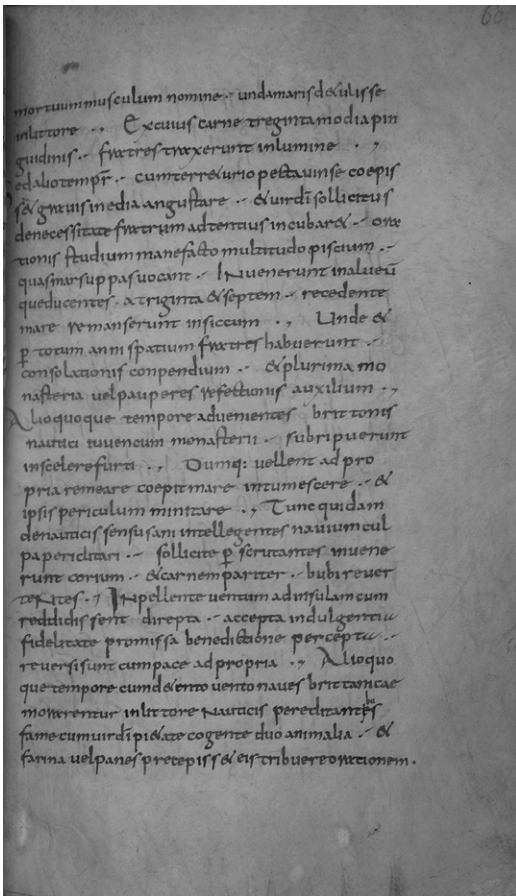 60
mortuum musculum nomine .- undamaris d&ulisse
inlittore ., Excuius carne treginta modia pin
guidinis .- fratres traxerunt inlumine .,
edalio tempr̄ .- cum terre&urio pestauinse coepis
s& grauis inedia angustare .- & uir dī sollicitus
denecessitate fratrum adtentius incubar& .- ora
tionis studium mane facto multitudo piscium .-
quas marsuppas uocant .- INuenerunt inalueū
queducentes . a triginta & septem .- recedente
mare remanserunt insiccum ., Unde &
p̄ totum anni spatium fratres habuerunt .-
consolationis conpendium .- & plurima mo
nasteria uel pauperes refectionis auxilium .,
Alioquoque tempore aduenientes brittonis
nautici iuuencum monasterii .- subripuerunt
inscelere furti ., Dumq: uellent ad pro
pria remeare coepit mare intumescere .- &
ipsis periculum minitare ., Tunc quidam
denauticis sensu sani intellegentes nauium cul
pa periclitari .- sollicite p̄ scrutantes inuene
runt corium .- & carnem pariter .- bubi reuer
teNtes ., INpellente uentum adinsulam cum
reddidissent direpta .- accepta indulgentia
fidelitate promissa benedictione percepta .-
reuersi sunt cum pace ad propria ., Alioquo
que tempore cum d&ento uento naues brittanicae
morarentur inlittore Nauticis pereditantes
fame cum uir dī pi&ate cogente duo animalia .- &
farina uel panes precepiss& eis tribuere orationem .